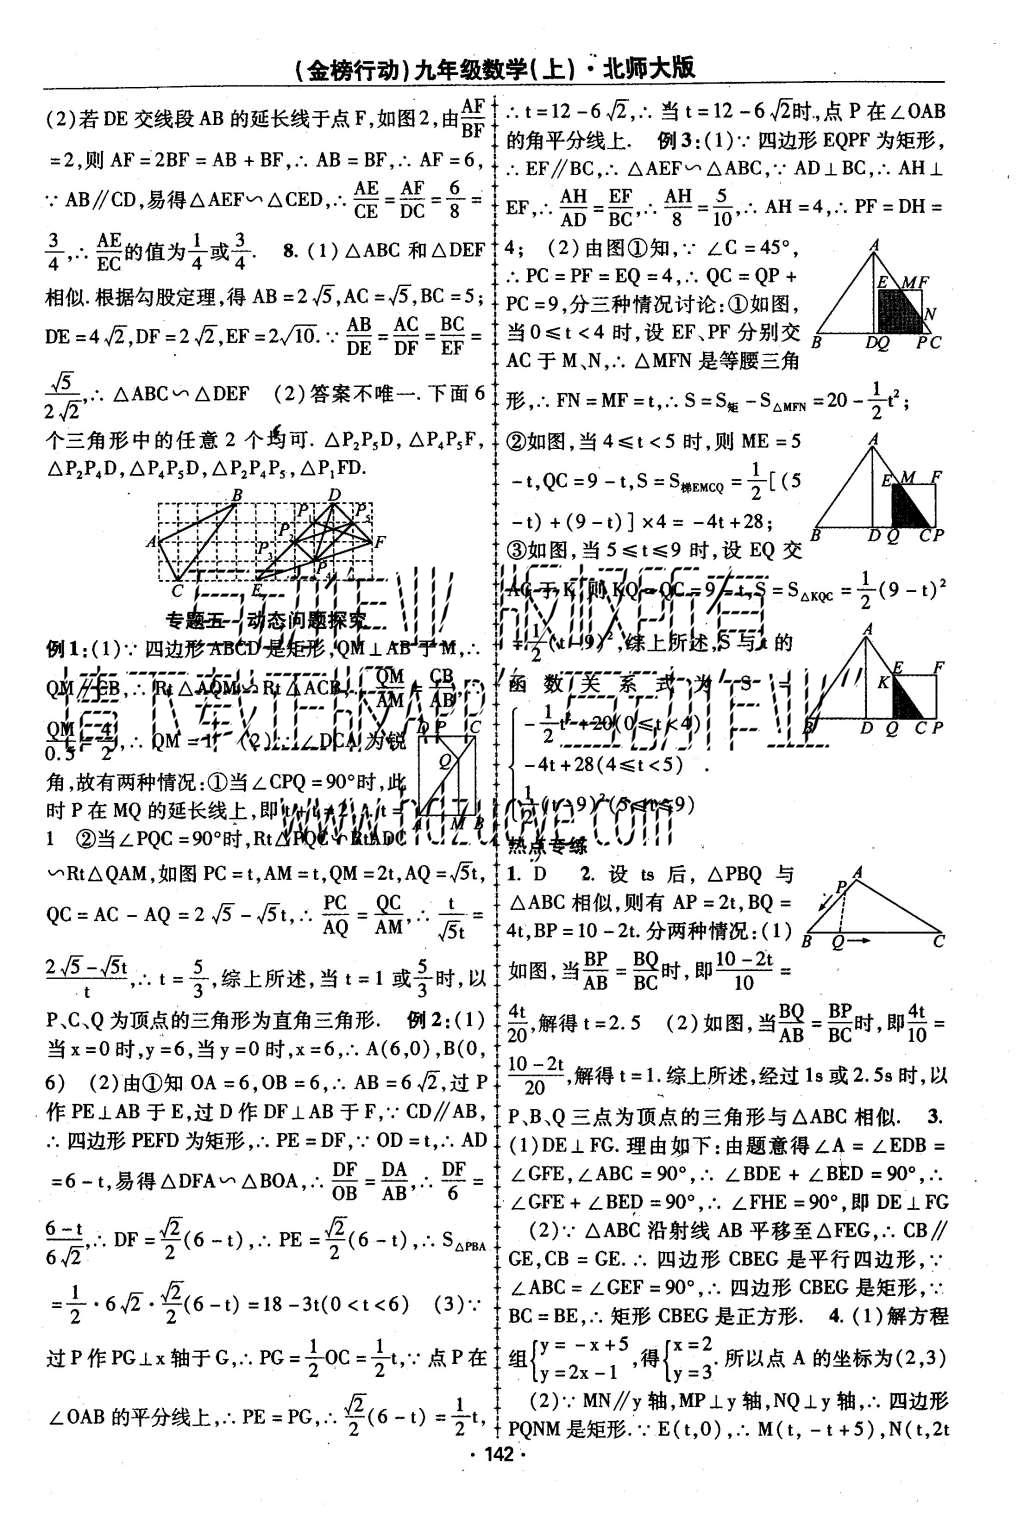 (金榜行动)九年级数学(上)·北师大版
(2)若 DE 交线段 AB 的延长线于点 F,如图2,由AF/BF
=2,则 AF=2BF=AB+BF,∴AB=BF,∴AF=6,
∵AB∥CD,易得△AEF∽△CED,∴AE/CE=AF/DC=6/8=
3/4,∴AE/EC的值为1/4或3/4. 8.(1)△ABC 和△DEF
相似.根据勾股定理,得 AB=2√5,AC=√5,BC=5;
DE=4√2,DF=2√2,EF=2√10.∵AB/DE=AC/DF=BC/EF=
√5/2√2,∴△ABC∽△DEF (2)答案不唯一.下面6
个三角形中的任意 2 个均可.△P₂P₅D,△P₄P₅F,
△P₂P₄D,△P₄P₅D,△P₂P₄P₅,△P₁FD.
专题五 动态问题探究
例1:(1)∵四边形 ABCD 是矩形,QM⊥AB 于 M,∴
QM∥CB,∴Rt△AQM∽Rt△ACB,∴QM/AM=CB/AB,
QM/0.5=4/2,∴QM=1 (2)∵∠DCA 为锐
角,故有两种情况:①当∠CPQ=90°时,此
时 P 在 MQ 的延长线上,即 t+t=2,∴t=
1 ②当∠PQC=90°时,Rt△PQC∽RtADC
∽Rt△QAM,如图 PC=t,AM=t,QM=2t,AQ=√5t,
QC=AC-AQ=2√5-√5t,∴PC/AQ=QC/AM,∴t/√5t=
2√5-√5t/t,∴t=5/3,综上所述,当 t=1 或5/3时,以
P、C、Q 为顶点的三角形为直角三角形. 例2:(1)
当 x=0 时,y=6,当 y=0 时,x=6,∴A(6,0),B(0,
6) (2)由①知 OA=6,OB=6,∴AB=6√2,过 P
作 PE⊥AB 于 E,过 D 作 DF⊥AB 于 F,∵CD∥AB,
∴四边形 PEFD 为矩形,∴PE=DF,∵OD=t,∴AD
=6-t,易得△DFA∽△BOA,∴DF/OB=DA/AB,∴DF/6=
6-t/6√2,∴DF=√2/2(6-t),∴PE=√2/2(6-t),∴S△PBA
=1/2·6√2·√2/2(6-t)=18-3t(0<t<6) (3)∵
过 P 作 PG⊥x 轴于 G,∴PG=1/2OC=1/2t,∵点 P 在
∠OAB 的平分线上,∴PE=PG,∴√2/2(6-t)=1/2t,
∴t=12-6√2,∴当 t=12-6√2时,点 P 在∠OAB
的角平分线上. 例3:(1)∵四边形 EQPF 为矩形,
∴EF∥BC,∴△AEF∽△ABC,∵AD⊥BC,∴AH⊥
EF,∴AH/AD=EF/BC,∴AH/8=5/10,∴AH=4,∴PF=DH=
4; (2)由图①知,∵∠C=45°,
∴PC=PF=EQ=4,∴QC=QP+
PC=9,分三种情况讨论:①如图,
当 0≤t<4 时,设 EF、PF 分别交
AC 于 M、N,∴△MFN 是等腰三角
形,∴FN=MF=t,∴S=S矩-S△MFN=20-1/2t²;
②如图,当 4≤t<5 时,则 ME=5
-t,QC=9-t,S=S梯EMCQ=1/2[(5
-t)+(9-t)]×4=-4t+28;
③如图,当 5≤t≤9 时,设 EQ 交
AC 于 K,则 KQ=QC=9-t,S=S△KQC=1/2(9-t)²
=1/2(t-9)²,综上所述,S 与 t 的
函数关系式为 S=
-1/2t²+20(0≤t<4)
-4t+28(4≤t<5) .
1/2(t-9)²(5≤t≤9)
热点专练
1. D 2. 设 ts 后,△PBQ 与
△ABC 相似,则有 AP=2t,BQ=
4t,BP=10-2t.分两种情况:(1)
如图,当BP/AB=BQ/BC时,即10-2t/10=
4t/20,解得 t=2.5 (2)如图,当BQ/AB=BP/BC时,即4t/10=
10-2t/20,解得 t=1.综上所述,经过 1s 或 2.5s 时,以
P、B、Q 三点为顶点的三角形与△ABC 相似. 3.
(1)DE⊥FG.理由如下:由题意得∠A=∠EDB=
∠GFE,∠ABC=90°,∴∠BDE+∠BED=90°,∴
∠GFE+∠BED=90°,∴∠FHE=90°,即 DE⊥FG
(2)∵△ABC 沿射线 AB 平移至△FEG,∴CB∥
GE,CB=GE.∴四边形 CBEG 是平行四边形,∵
∠ABC=∠GEF=90°,∴四边形 CBEG 是矩形,∵
BC=BE,∴矩形 CBEG 是正方形. 4.(1)解方程
组{y=-x+5 y=2x-1,得{x=2 y=3.所以点 A 的坐标为(2,3)
(2)∵MN∥y 轴,MP⊥y 轴,NQ⊥y 轴,∴四边形
PQNM 是矩形.∵E(t,0),∴M(t,-t+5),N(t,2t
·142·